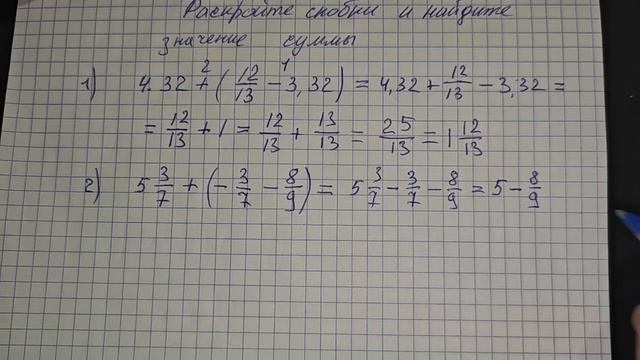 Раскройте скобки и найдите
значение суммы
1) 4.32 +² (12/13 -¹ 3,32) = 4,32 + 12/13 - 3,32 =
= 12/13 + 1 = 12/13 + 13/13 = 25/13 = 1 12/13
2) 5 3/7 + (- 3/7 - 8/9) = 5 3/7 - 3/7 - 8/9 = 5 - 8/9